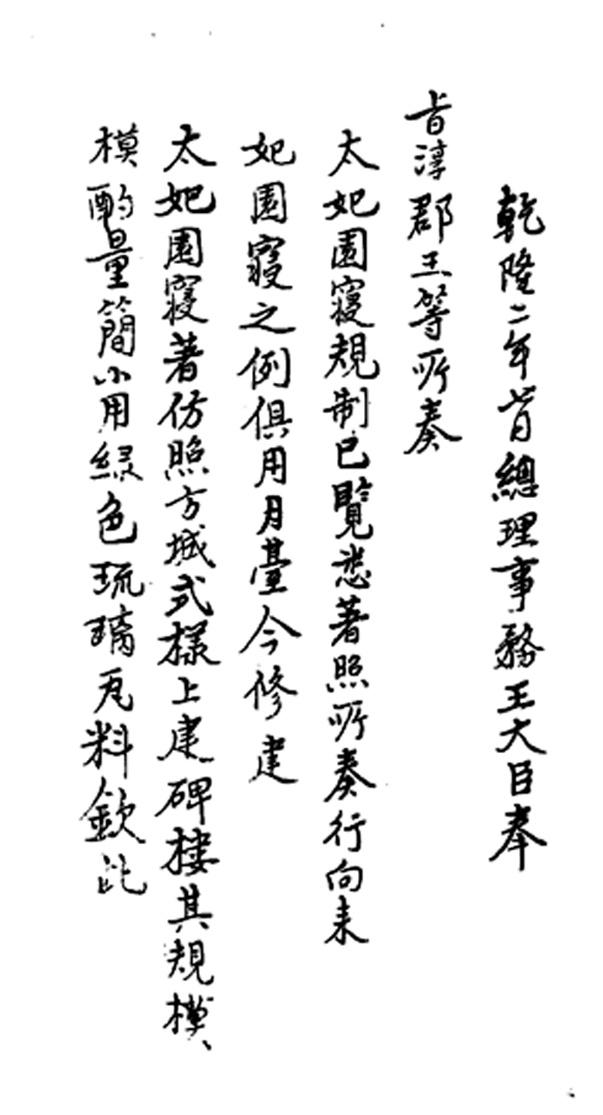 乾隆二年七月總理事務王大臣奉
旨淳郡王等所奏
太妃園寢規制已覽悉著照所奏行向来
妃園寢之例俱用月臺今修建
太妃園寢著仿照方城式樣上建碑樓其規模、
模酌量簡小用綠色琉璃瓦料欽此